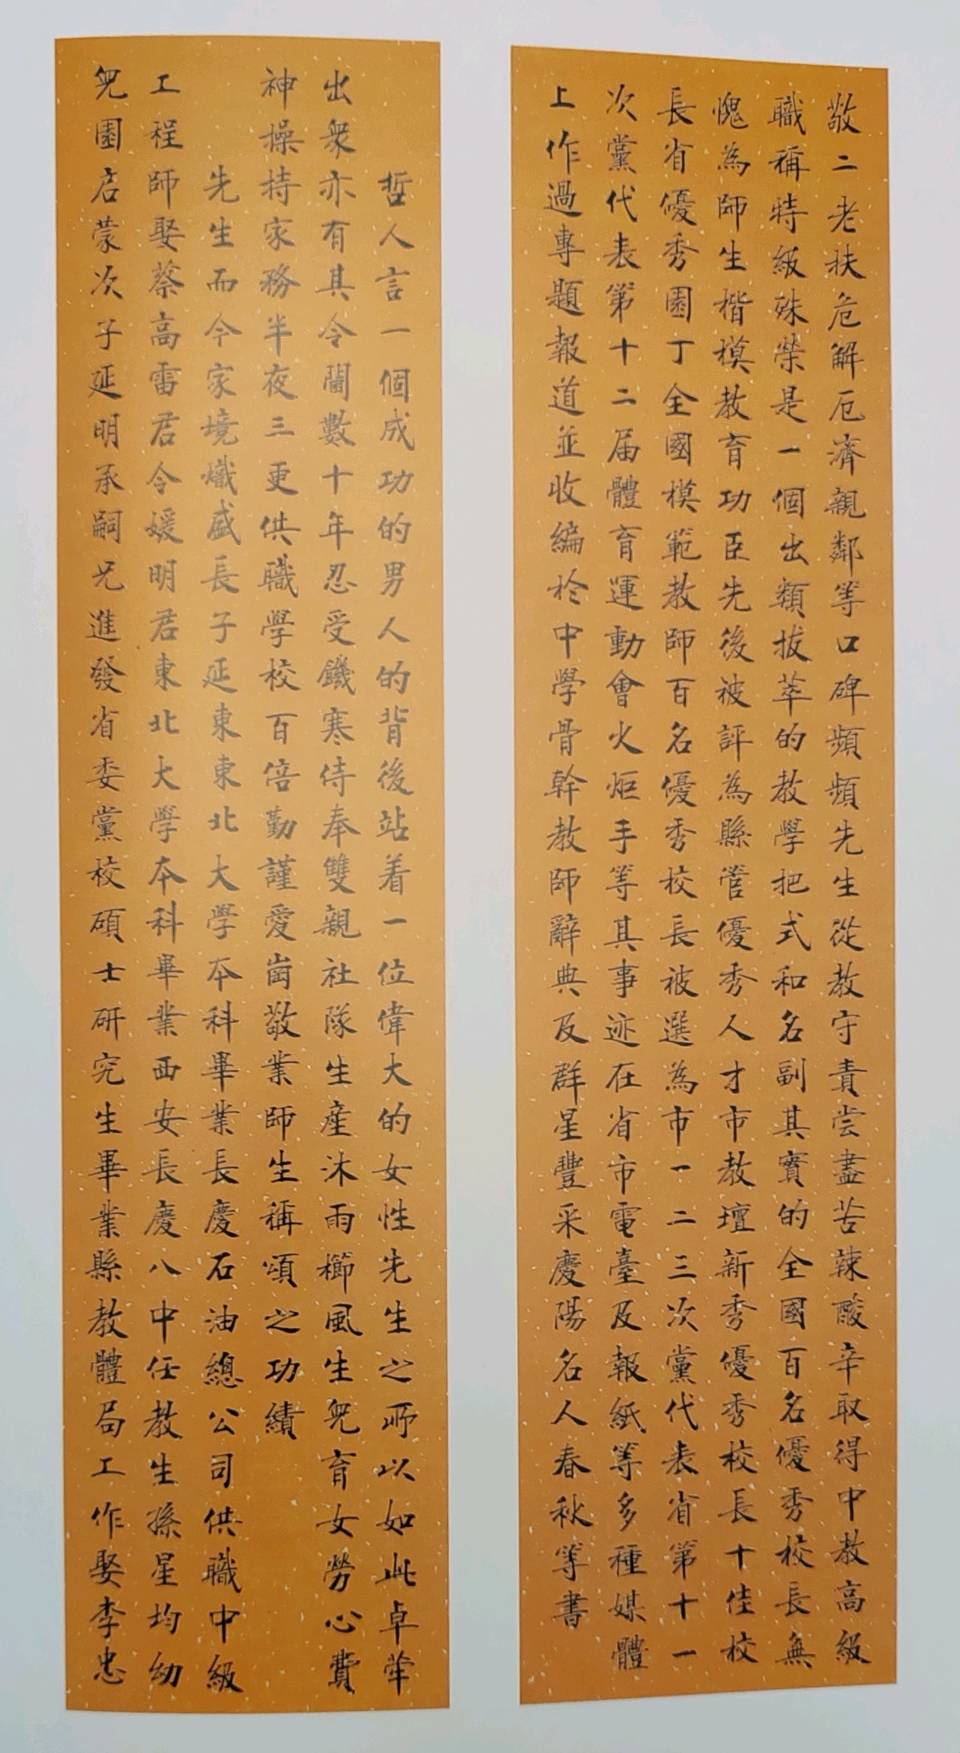 敬二老扶危解厄濟親鄰等口碑頻頻先生從教守責嘗盡苦辣酸辛取得中教高級
職稱特級殊榮是一個出類拔萃的教學把式和名副其實的全國百名優秀校長無
愧為師生楷模教育功臣先後被評為縣管優秀人才市教壇新秀優秀校長十佳校
長省優秀園丁全國模範教師百名優秀校長被選為市一二三次黨代表省第十一
次黨代表第十二届體育運動會火炬手等其事迹在省市電臺及報紙等多種媒體
上作過專題報道並收編於中學骨幹教師辭典及群星豐采慶陽名人春秋等書
哲人言一個成功的男人的背後站着一位偉大的女性先生之所以如此卓犖
出衆亦有其令閫數十年忍受饑寒侍奉雙親社隊生産沐雨櫛風生兒育女勞心費
神操持家務半夜三更供職學校百倍勤謹愛崗敬業師生稱頌之功績
先生而今家境熾盛長子延東東北大學本科畢業長慶石油總公司供職中級
工程師娶蔡高雷君令媛明君東北大學本科畢業西安長慶八中任教生孫星均幼
兒園启蒙次子延明承嗣兄進發省委黨校碩士研究生畢業縣教體局工作娶李忠